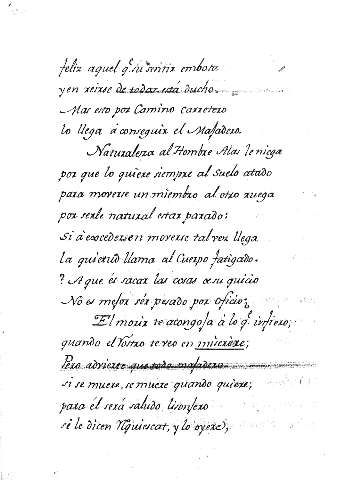 feliz aquel q.e su sentir embota
y en reirse de todar está ducho.
Mas esto por Camino carretero
lo llega á conseguir el Majadero.
Naturaleza al Hombre Alas le niega
por que lo quiere siempre al Suelo atado
para moverse un miembro al otro ruega
por serle natural estar parado;
Si á excederse en moverse tal vez llega
la quietud llama al Cuerpo fatigado.
? A que és sacar las cosas de su quicio
No es mejor sér pesado por Oficio?
El morir te acongoja á lo q.e infiero,
quando el rostro te veo en miserére;
Pero advierte que todo majadero
si se muere, se muere quando quiere;
para él será saludo lisonjero
si le dicen Rquiescat, y lo oyere,